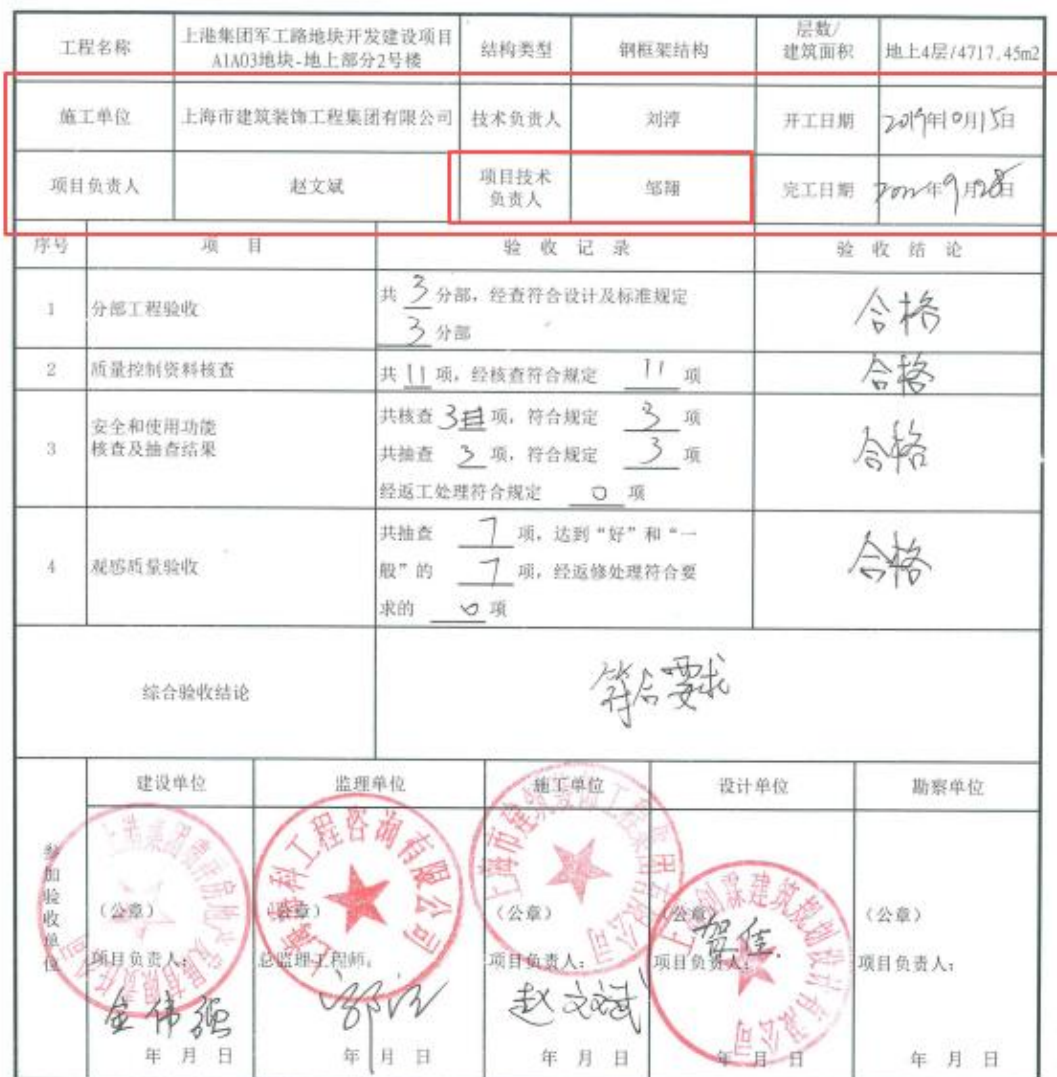 工程名称 上港集团军工路地块开发建设项目 A1A03地块-地上部分2号楼 结构类型 钢框架结构 层数/建筑面积 地上4层/4717.45m2
施工单位 上海市建筑装饰工程集团有限公司 技术负责人 刘淳 开工日期 2019年10月15日
项目负责人 赵文斌 项目技术负责人 邹翔 完工日期 2022年9月28日
序号 项 目 验 收 记 录 验 收 结 论
1 分部工程验收 共 3 分部，经查符合设计及标准规定
3 分部 合格
2 质量控制资料核查 共 11 项，经核查符合规定 11 项 合格
3 安全和使用功能
核查及抽查结果
共核查 3 项，符合规定 3 项
共抽查 3 项，符合规定 3 项
经返工处理符合规定 0 项
合格
4 观感质量验收
共抽查 7 项，达到“好”和“一
般”的 7 项，经返修处理符合要
求的 0 项
合格
综合验收结论 符合要求
参加验收单位
建设单位 监理单位 施工单位 设计单位 勘察单位
（公章） （公章） （公章） （公章） （公章）
项目负责人： 总监理工程师： 项目负责人： 项目负责人： 项目负责人：
金伟强 赵文斌 贺佳
年 月 日 年 月 日 年 月 日 年 月 日 年 月 日
上海市建筑装饰工程集团有限公司